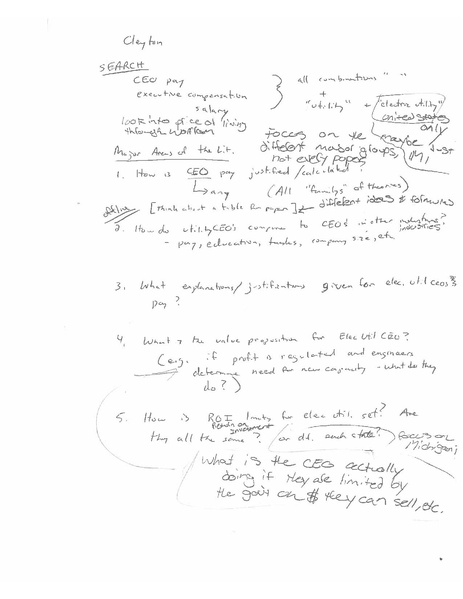 Clayton
SEARCH
CEO pay
executive compensation
salary
all combinations " "
+
"utility" + "electric utility"
united states
only
look into price of living
through
Focus on the
different major groups,
not every paper
maybe just
Major Areas of the Lit.
1. How is CEO pay justified/calculated?
any
(All "family" of theories)
[Think about a table for paper] different ideas & formulas
2. How do utility CEO's compare to CEO's in other industries?
industries
- pay, education, company size, etc
3. What explanations/justifications given for elec. util CEOs
pay?
4. What is the value proposition for Elec Util CEO?
(e.g. if profit is regulated and engineers
determine need for new capacity - what do they
do?)
5. How is ROI limits for elec util. set? Are
Return on
Investment
they all the same? or each state? focus on
Michigan
What is the CEO actually
doing if they are limited by
the gov't on $ they can sell, etc.